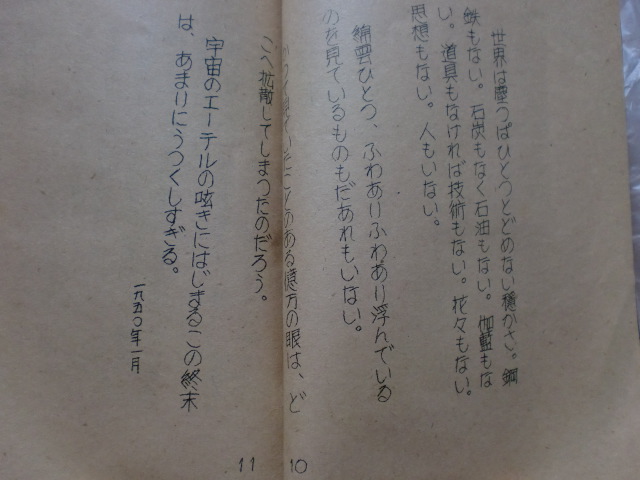 世界は塵っぱひとつとどめない穏かさ。鋼
鉄もない。石炭もなく石油もない。伽藍もな
い。道具もなければ技術もない。花々もない。
思想もない。人もいない。
綿雲ひとつ、ふわありふわあり浮んでいる
のを見ているものもだあれもいない。
かつて見ていたことのある億万の眼は、ど
こへ拡散してしまったのだろう。
宇宙のエーテルの呟きにはじまるこの終末
は、あまりにうつくしすぎる。
一九五〇年一月
11 10